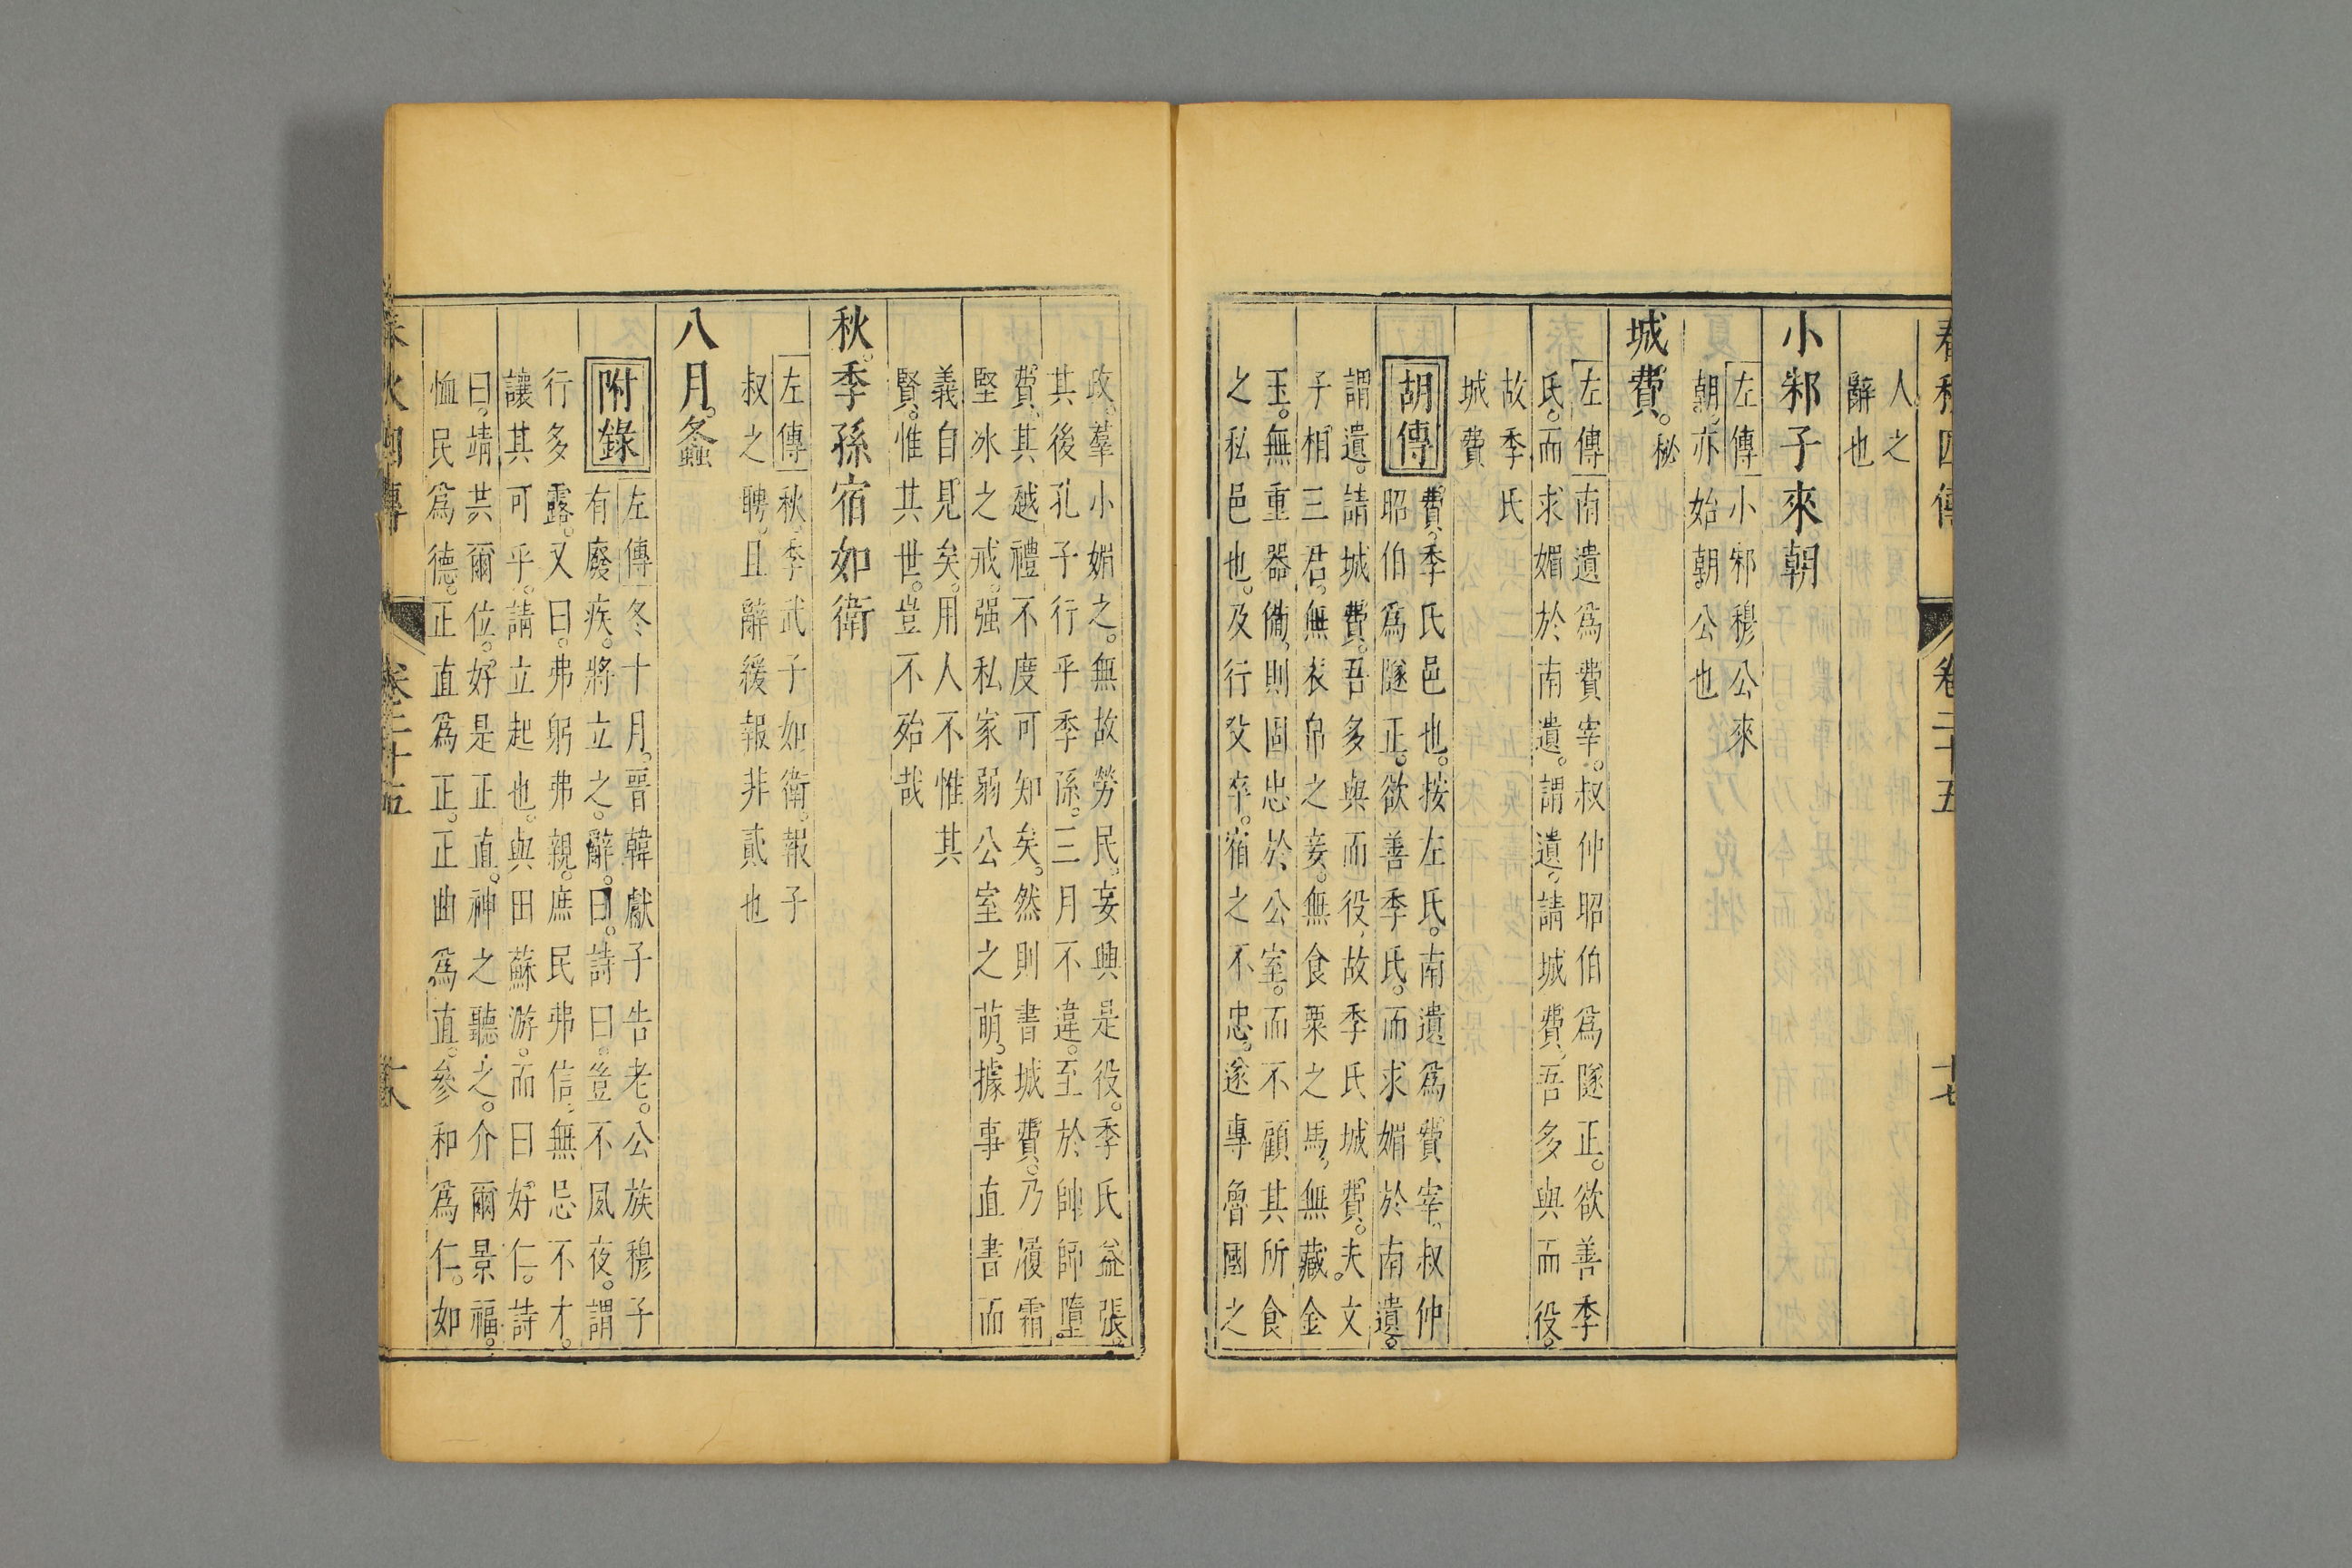 春秋四傳 卷二十五 十七
人之
辭也
小邾子來朝
左傳小邾穆公來
朝。亦始朝公也
城費。秘
左傳南遺爲費宰。叔仲昭伯爲隧正。欲善季
氏。而求媚於南遺。謂遺。請城費。吾多與而役。
故季氏
城費
胡傳費、季氏邑也。按左氏。南遺爲費宰。叔仲
昭伯爲隧正。欲善季氏。而求媚於南遺。
謂遺。請城費。吾多與而役。故季氏城費。夫文
子相三君。無衣帛之妾。無食粟之馬。無藏金
玉。無重器備。則固忠於公室。而不顧其所食
之私邑也。及行父卒。宿之不忠。遂專魯國之
政。羣小媚之。無故勞民。妄興是役。季氏益張。
其後孔子行乎季孫。三月不違。至於帥師墮
費。其越禮不度可知矣。然則書城費。乃履霜
堅冰之戒。强私家弱公室之萌。據事直書而
義自見矣。用人不惟其
賢。惟其世。豈不殆哉
秋。季孫宿如衛
左傳秋。季武子如衛。報子
叔之聘。且辭緩報非貳也
八月。螽
附錄左傳冬十月。晉韓獻子告老。公族穆子
有廢疾。將立之。辭。曰。詩曰。豈不夙夜。謂
行多露。又曰。弗躬弗親。庶民弗信。無忌不才。
讓其可乎。請立起也。與田蘇游。而曰好仁。詩
曰。靖共爾位。好是正直。神之聽之。介爾景福。
恤民爲德。正直爲正。正曲爲直。參和爲仁。如
春秋四傳 卷二十五 十八